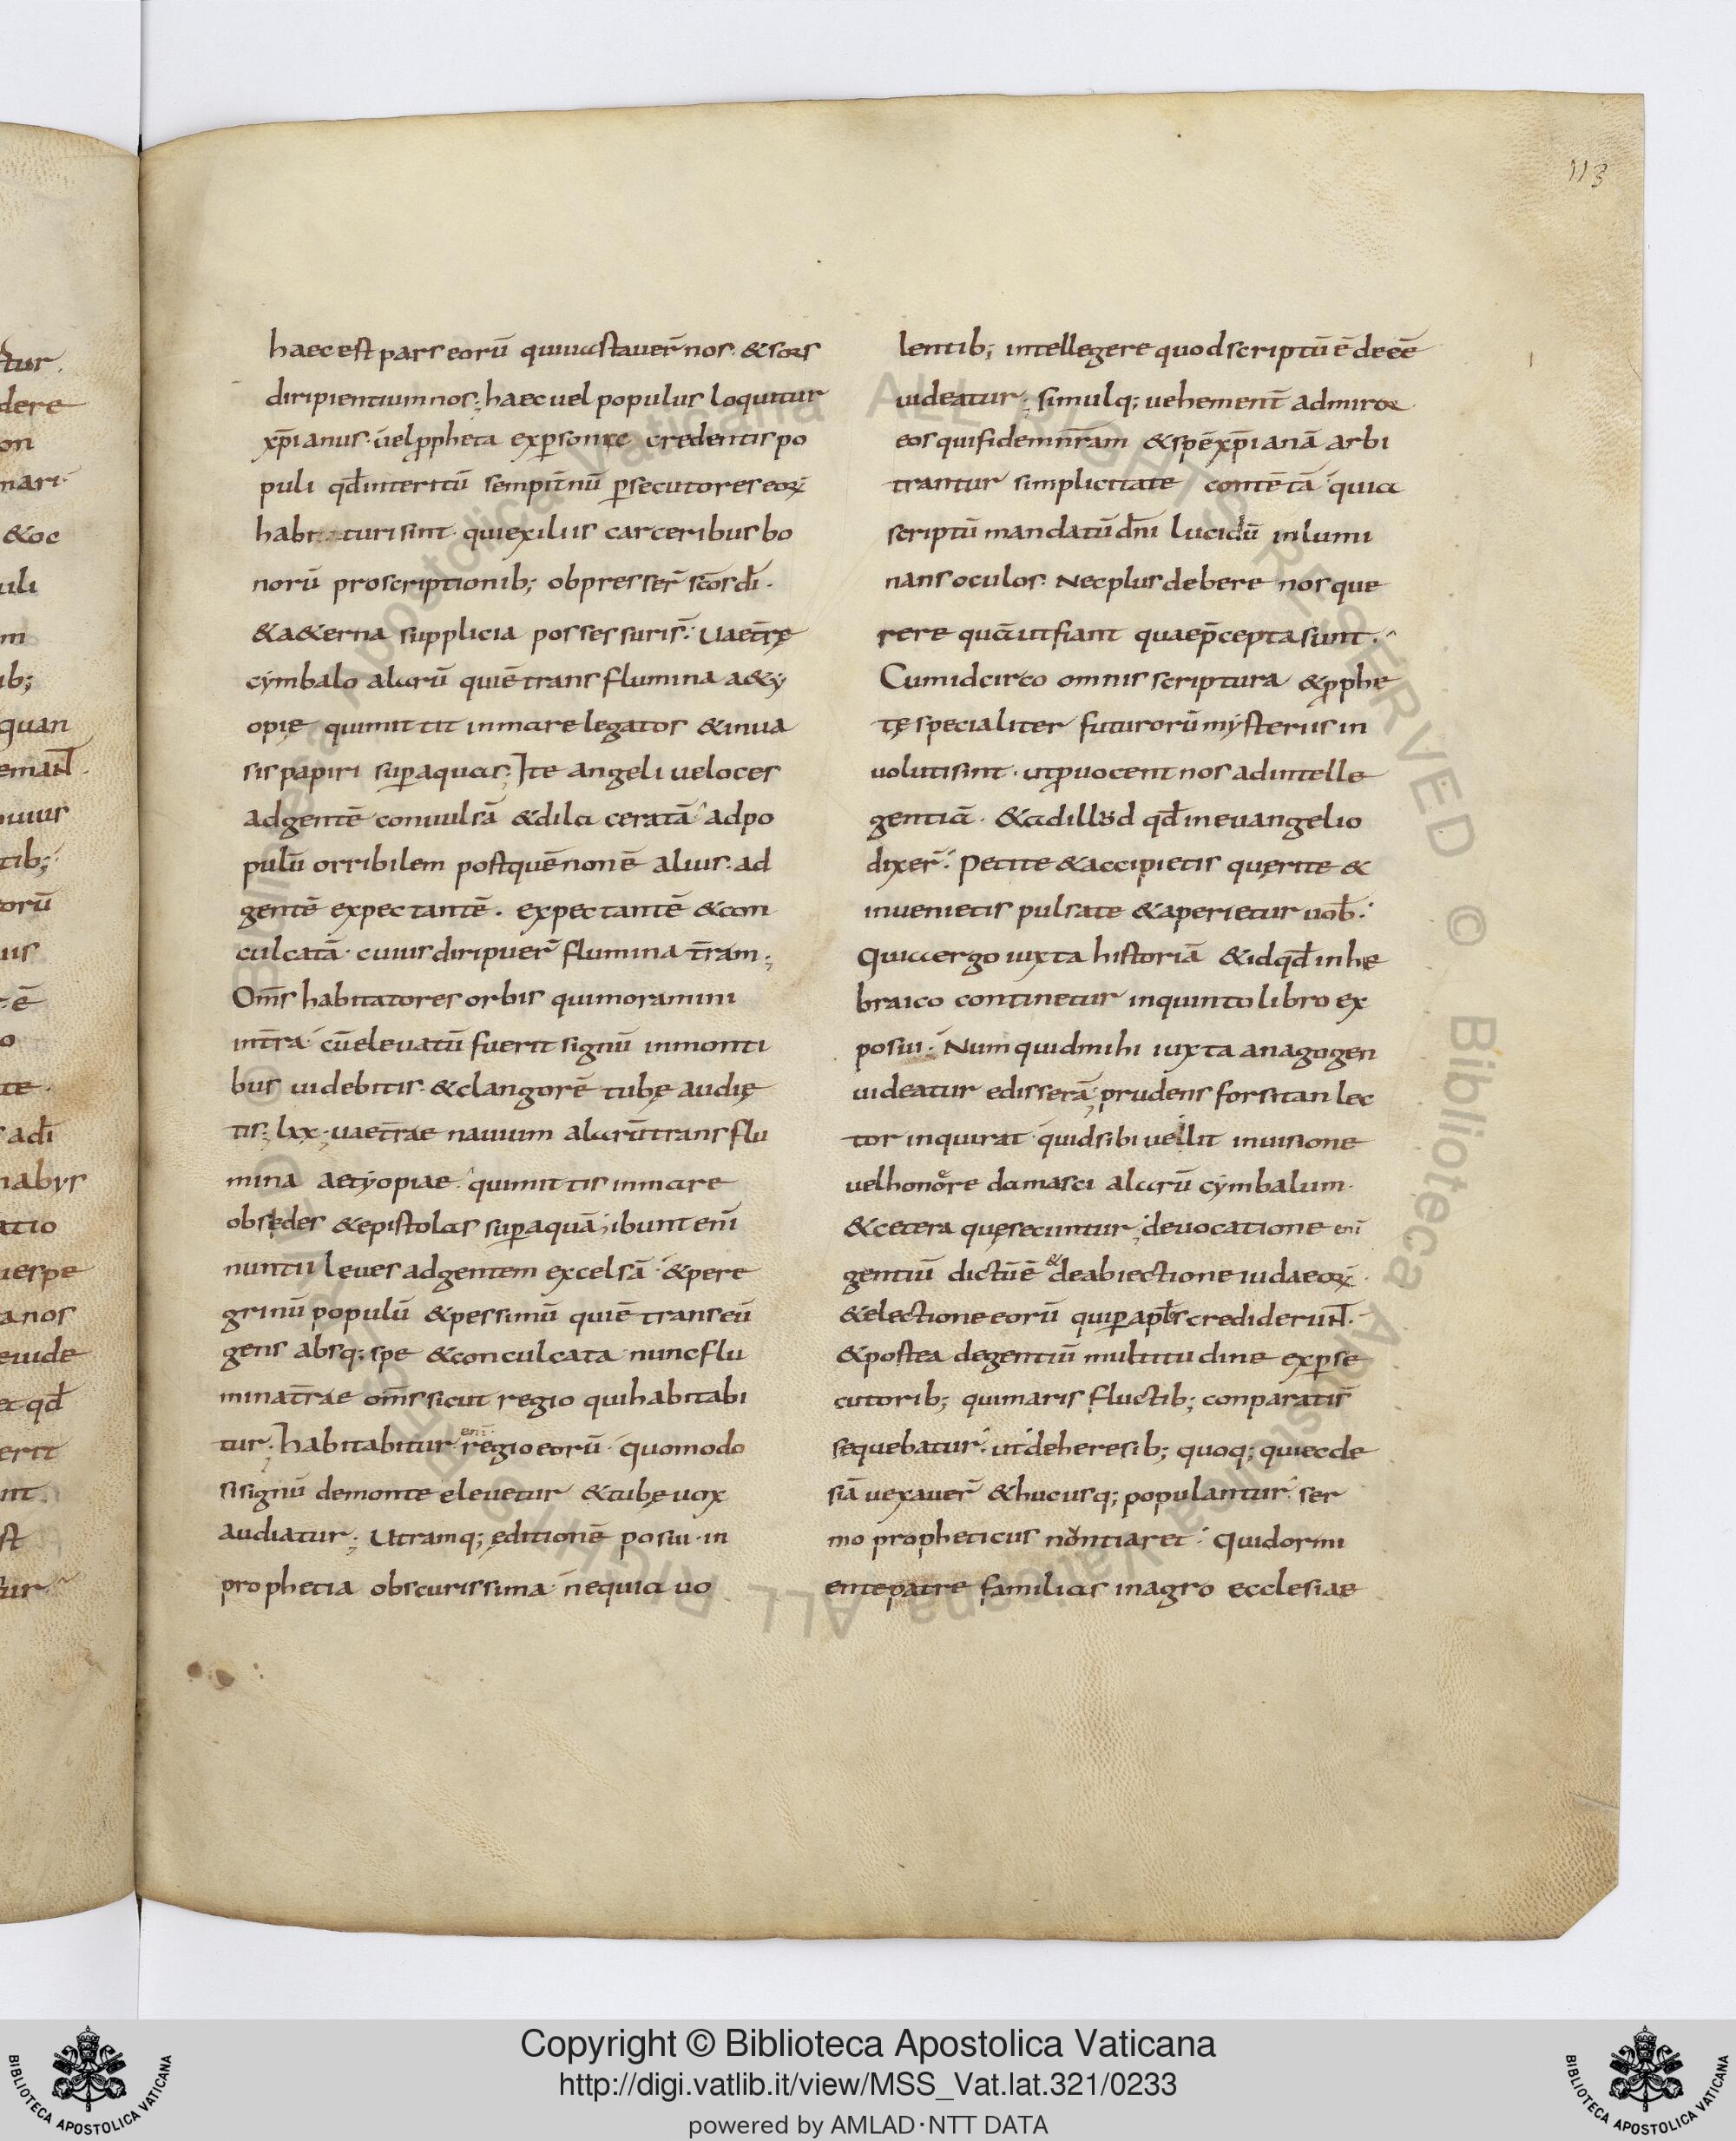 113
haec est pars eorū qui uastauer̄ nos. & sors
diripientium nos; haec uel populus loquitur
xp̄ianus. uel ꝓpheta ex ꝑsonae credentis po
puli qđ interitū sempit̄nū ꝑsecutores eoꝝ
habituri sint. qui exiliis carceribus bo
norū proscriptionib; obpresser̄ sc̄os dī.
& a&erna supplicia possessuris; Uae t̄rę
cẏmbalo alarū qui ē trans flumina a&ẏ
opię qui mittit in mare legatos & in ua
sis papiri suꝑ aquas; Ite angeli ueloces
ad gentē conuulsā & dilaceratā ad po
pulū orribilem post quē non ē alius. ad
gentē expectantē. expectantē & con
culcatā. cuius diripuer̄ flumina t̄ram;
Om̄s habitatores orbis qui moramini
in t̄ra cū eleuatū fuerit signū in monti
bus uidebitis. & clangorē tubę audię
tis; lxx; uae t̄rae nauium alarū trans flu
mina aetẏopiae. qui mittis in mare
obsędes & epistolas suꝑ aquā; ibunt enī
nuntii leues ad gentem excelsā. & pere
grinū populū & pessimū qui ē trans eū
gens absq; spe & conculcata nunc flu
mina t̄rae om̄s sicut regio qui habitabi
tur; habitabitur enī regio eorū quomodo
si signū de monte eleuetur & tubę uox
audiatur; Utramq; ęditionē posui. in
prophetia obscurissima ne quia uo
lentib; intellegere quod scriptū ē deeē
uideatur; simulq; uehement̄ admiror
eos qui fidem nr̄am & spē xp̄ianā arbi
trantur simplicitate contētā quia
scriptū mandatū dn̄i lucidū inlumi
nans oculos. Nec plus debere nos que
rere quā ut fiant quae p̄cepta sunt.
Cum idcirco omnis scriptura & ꝓphe
tę specialiter futurorū mẏsteriis in
uoluti sint. ut ꝓuocent nos ad intelle
gentiā. & ad illud qđ in euangelio
dixer̄. Petite & accipietis quęrite &
inuenietis pulsate & aperietur uob̄.
Quia ergo iuxta historiā & id qđ in he
braico continetur in quinto libro ex
posui. Num quid mihi iuxta anagogen
uideatur edisserā; prudens forsitan lec
tor inquirat quid sibi uellit in uisione
uel honore damasci alarū cẏmbalum.
& cetera quę secuntur; de uocatione enī
gentiū dictū ē & de abiectione iudaeoꝝ.
& electione eorū qui ꝑ apl̄s crediderunt.
& postea de gentiū multitudine ex ꝑse
cutorib; qui maris fluctib; conparatis̄
sequebatur. ut de heresib; quoq; qui eccle
siā uexauer̄ & hucusq; populantur ser
mo propheticus nontiaret. Qui dormi
ente patre familias in agro ecclesiae
Copyright © Biblioteca Apostolica Vaticana
http://digi.vatlib.it/view/MSS_Vat.lat.321/0233
powered by AMLAD·NTT DATA
BIBLIOTECA APOSTOLICA VATICANA
BIBLIOTECA APOSTOLICA VATICANA